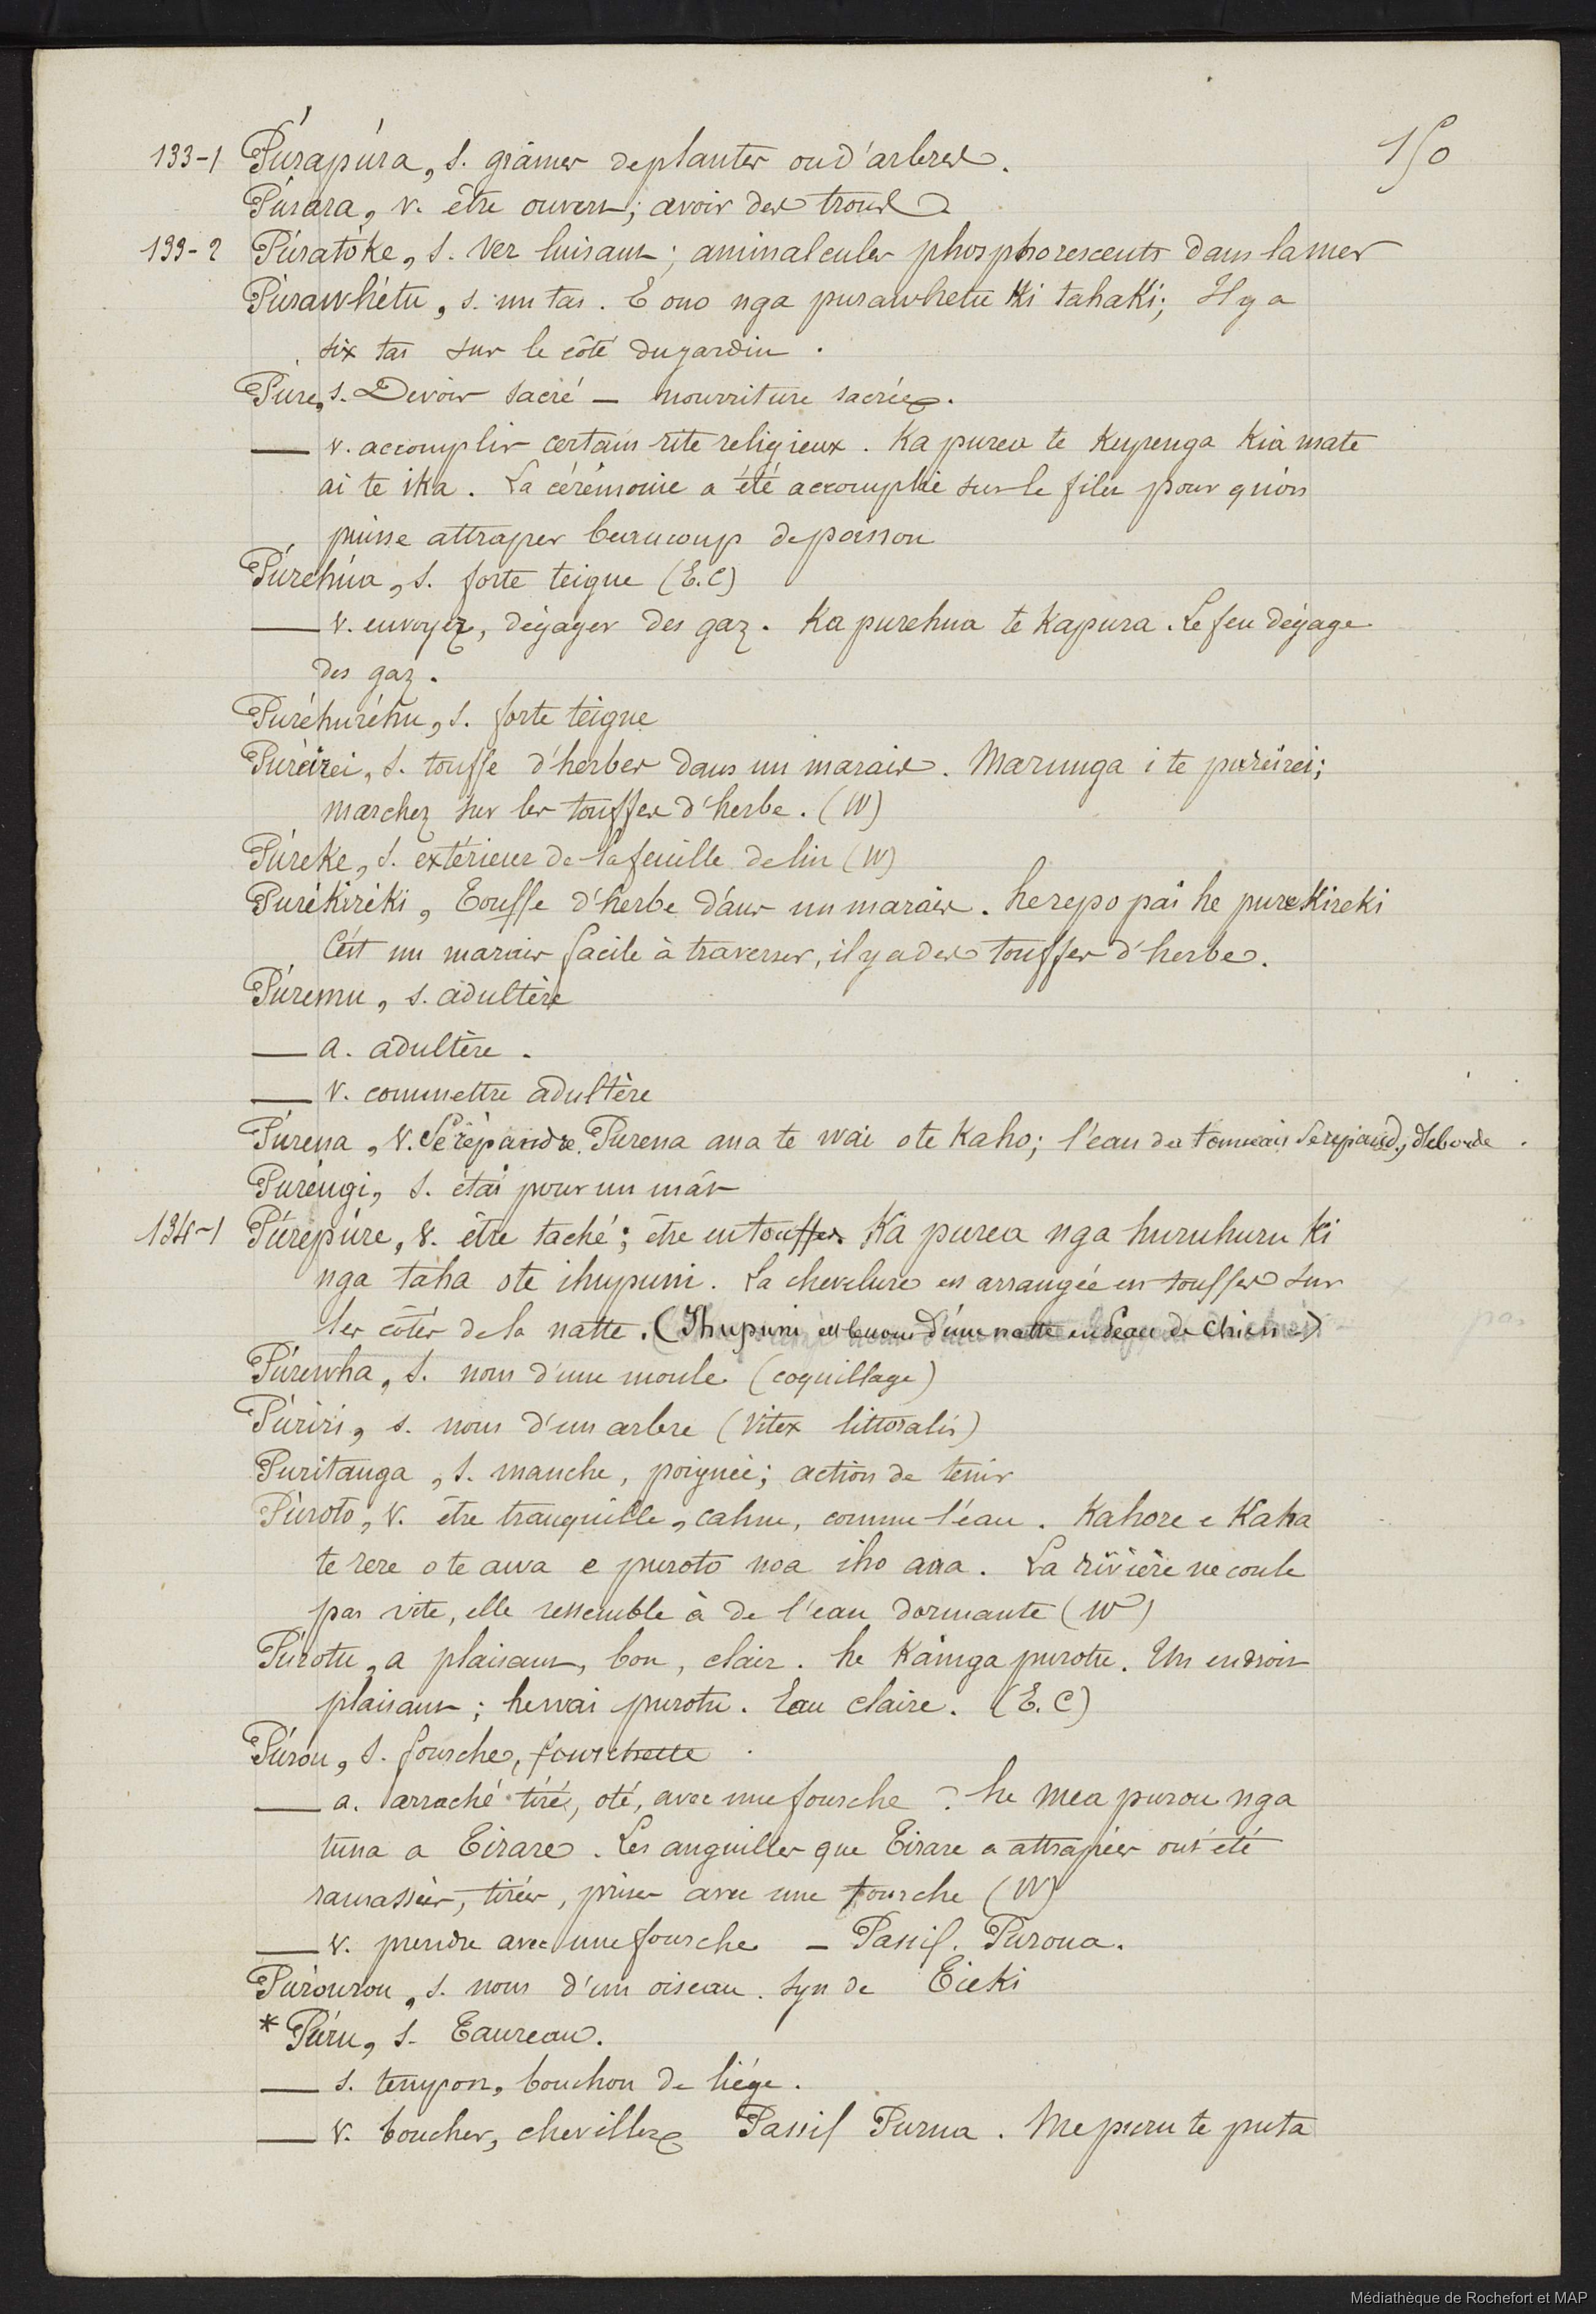 150
133-1 Púrapúra, s. graines de plantes ou d'arbres.
Púrara, v. être ouvert; avoir des trous
133-2 Púratóke, s. Ver luisant; aminalcules phosphorescents dans la mer
Púrawhétu, s. un tas. E ono nga purawhetu ki tahaki; Il y a
six tas sur le côté du jardin.
Púre, s. Devoir sacré — nourriture sacrée.
— v. accomplir certain rite religieux. Ka purea te Kupenga Kia mate
ai te ika. La cérémonie a été accomplie sur le filet pour qu'on
puisse attraper beaucoup de poisson
Púrehúa, s. forte teigne (E.C)
— v. envoyer, dégager des gaz. Ka purehua te Kapura. Le feu dégage
des gaz.
Puréhuréhu, s. forte teigne
Puréirei, s. touffe d'herbes dans un marais. Marunga i te pureirei;
marchez sur les touffes d'herbe. (W)
Púreke, s. extérieur de la feuille de lin (W)
Purékiréki, Touffe d'herbe dans un marais. he repo pai he purekireki
C'est un marais facile à traverser, il y a des touffes d'herbe.
Púremu, s. adultère
— a. adultère.
— v. commettre adultère
Púrena, v. Se répandre. Purena ana te wai o te Kaho; l'eau du tonneau se répand, déborde.
Puréngi, s. étai pour un mât
134-1 Púrepúre, v. être taché; être en touffes. Ka purea nga huruhuru ki
nga taha o te ihupuni. La chevelure est arrangée en touffes sur
les côtés de la natte. (Ihupuni est le nom d'une natte en peau de chien)
Púrewha, s. nom d'une moule (coquillage)
Púriri, s. nom d'un arbre (Vitex littoralis)
Puritanga, s. manche, poignée; action de tenir
Púroto, v. être tranquille, calme, comme l'eau. Kahore e Kaha
te rere o te awa e puroto noa iho ana. La rivière ne coule
pas vite, elle ressemble à de l'eau dormante (W)
Púrotu, a plaisant, bon, clair. he Kainga purotu. Un endroit
plaisant; he wai purotu. Eau claire. (E.C)
Púrou, s. fourche, fourchette
— a. arraché tiré, oté, avec une fourche. he mea purou nga
tuna a Tirare. Les anguilles que Tirare a attrapées ont été
ramassées, tirées, prises avec une fourche (W)
— v. prendre avec une fourche — Passif. Puroua.
Púrourou, s. nom d'un oiseau. syn de Tieki
* Púru, s. Taureau.
— s. tempon, bouchon de liége.
— v. boucher, cheviller Passif Purua. Me puru te puta
Médiathèque de Rochefort et MAP